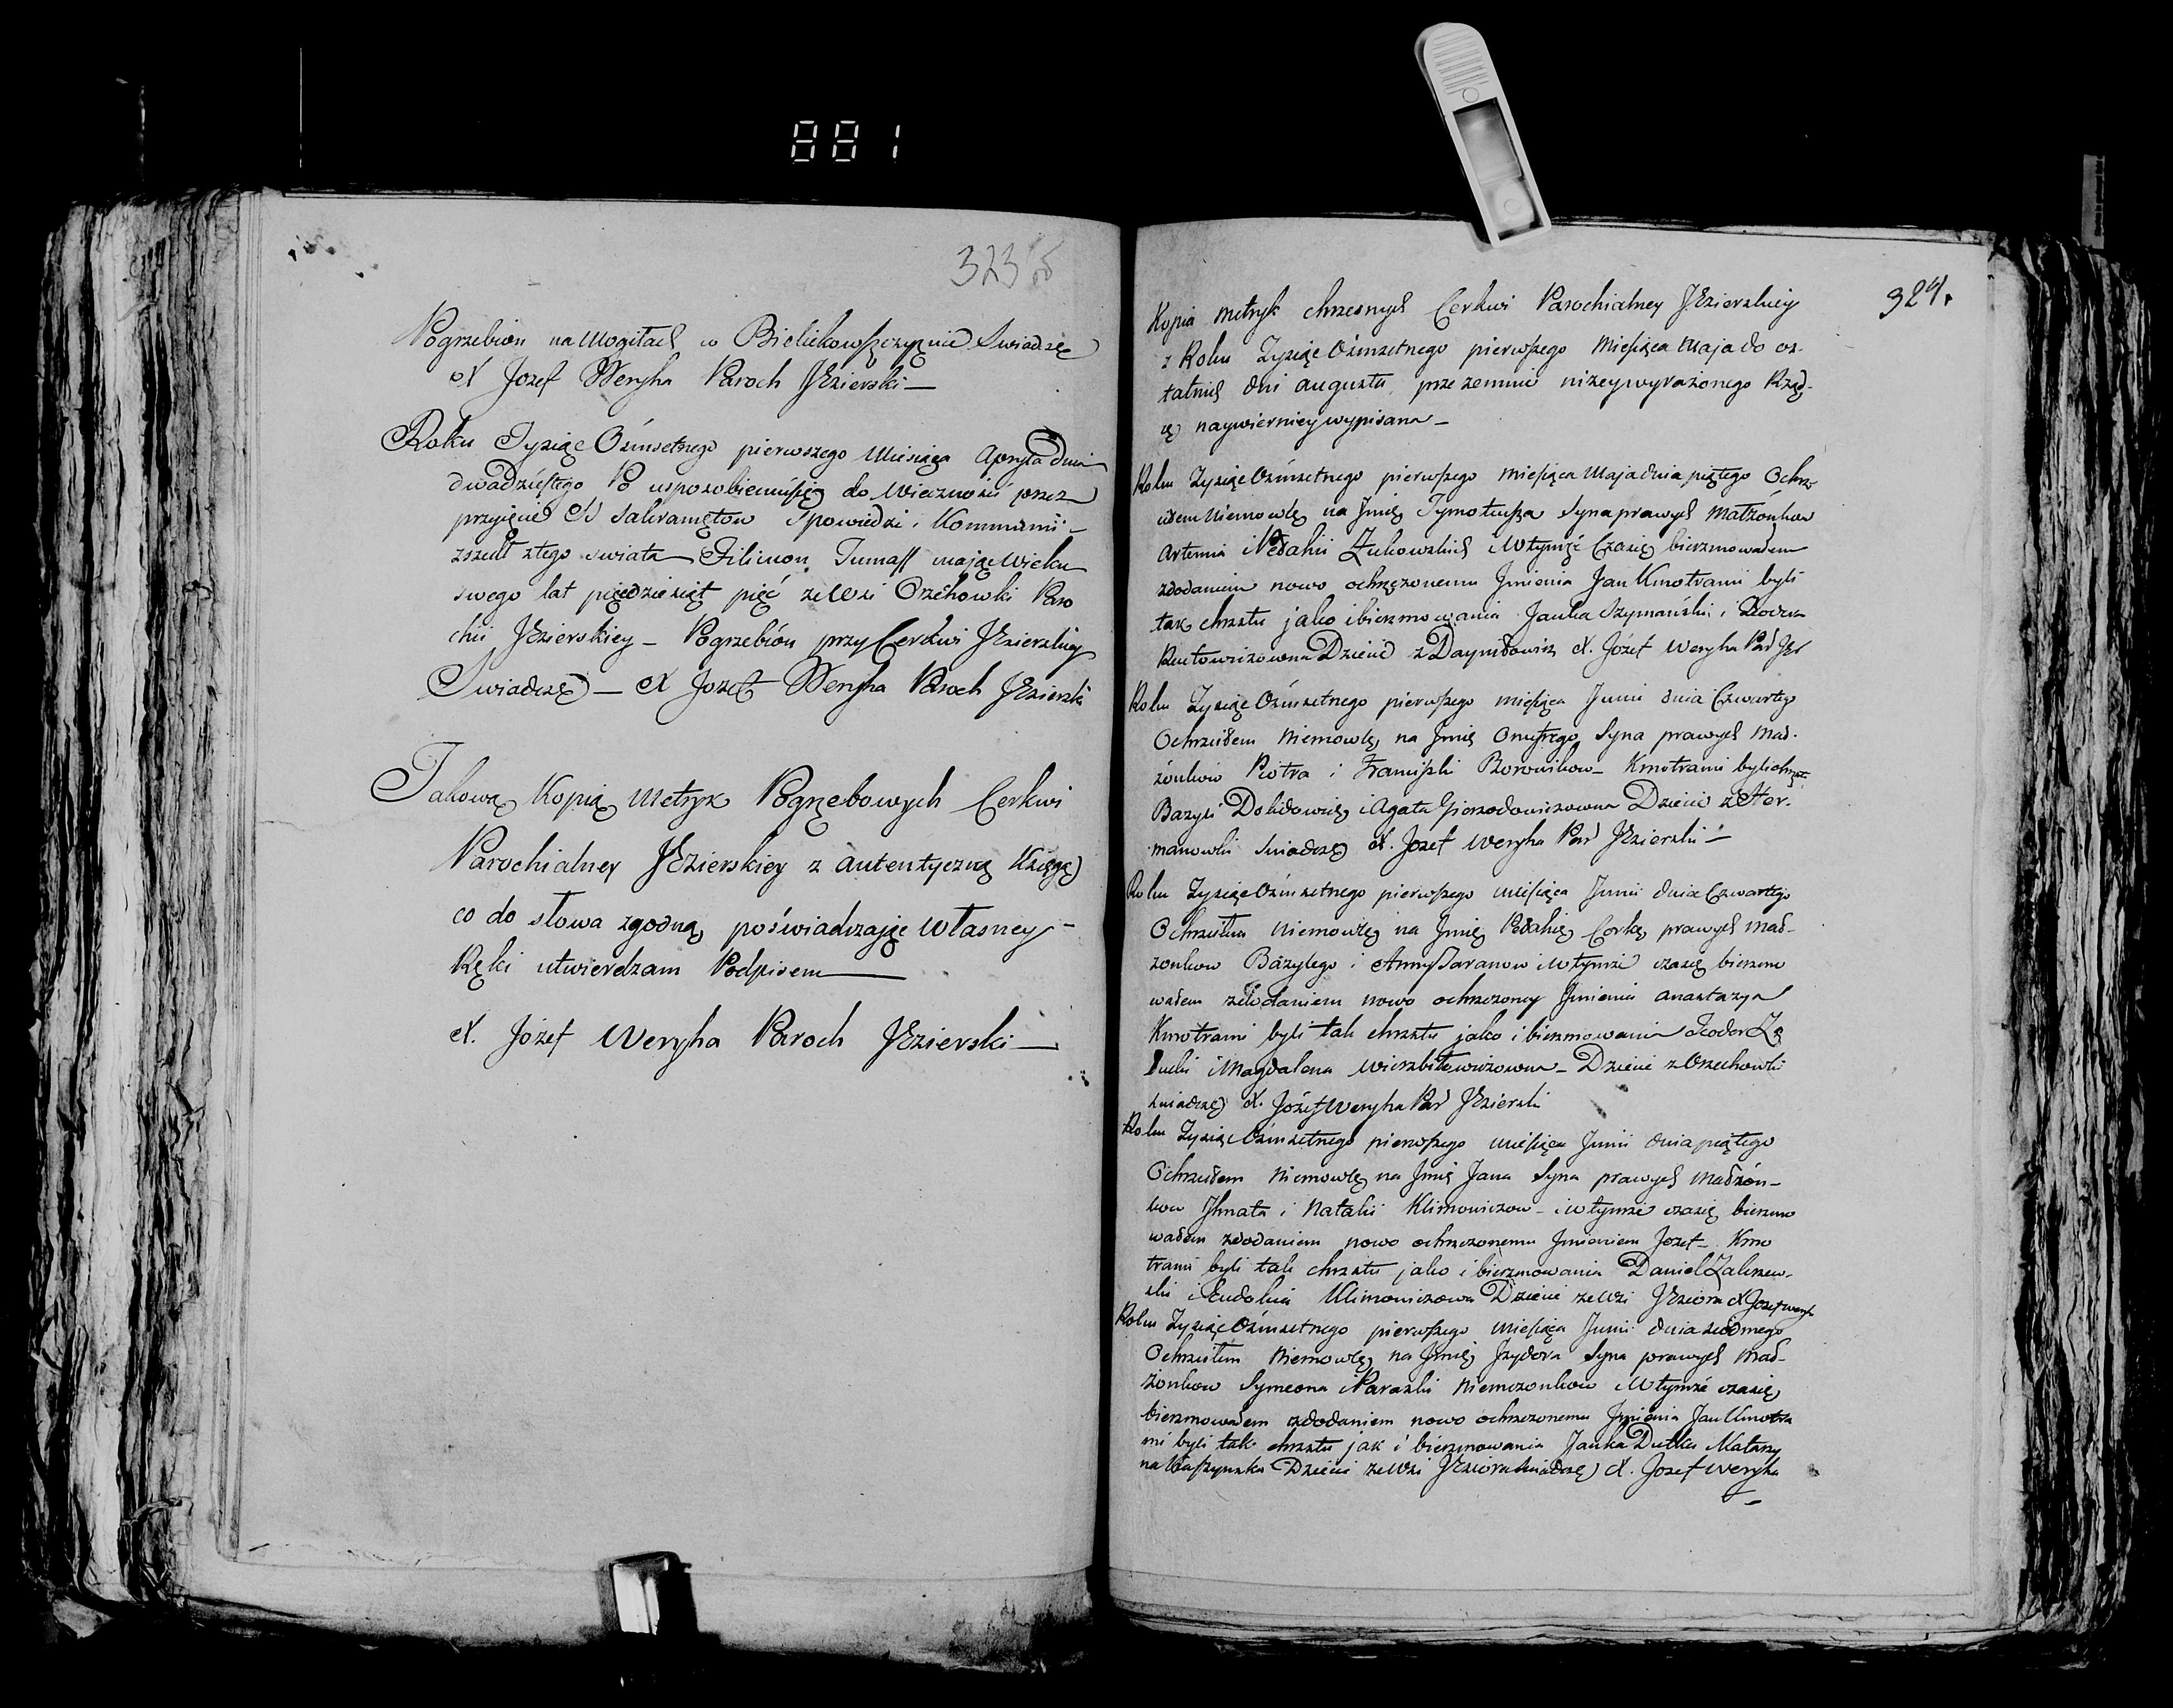 881
323
Pogrzebion na Mogiłach w Bielikowszczyznie Swiadczę
X Jozef Weryha Paroch JEzierski —
Roku Tysiąc Ośmsetnego pierwszego Miesiąca Apryla Dnia
dwadziestego Po usposobieniusię do Wieczności przez
przyięcie SS Sakramętow Spowiedzi i Kommunii —
zszedł ztego swiata Filimon Tumasz mając Wieku
swego lat pięcdziesiąt pięć ze Wsi Orzéhowki Paro
chii JEzierskiey — Pogrzebión przy Cerkwi JEzierskiey
Swiadczę — X Jozef Weryha Paroch JEzierski
Takową Kopią Metryk Pogrzebowych Cerkwi
Parochialney JEzierskiey z autentyczną Księgą
co do słowa zgodną, poświadczając Własney -
Ręki utwierdzam Podpisem —
X. Józef Weryha Paroch JEzierski —
324.
Kopia Metryk chrzesnych Cerkwi Parochialney JEzierskiey
z Roku Tysiąc Ośmsetnego pierwszego Miesiąca Maja do os-
tatnich dni augusta, przezemnie niżeywyrażonego Rząd-
cę naywierniey wypisana —
Roku Tysiąc Ośmsetnego pierwszego miesiąca Maja dnia piątego Ochrz-
ciłem Niemowlę na Jmię Tymoteusza Syna prawych Małżónkow
Artemia i Pedahii Żukowskich i Wtymże Czasię bierzmowałem
zdodaniem nowo ochrzczonemu Jmienia Jan Kmotrami byli
tak chrztu jako i bierzmowania Janka Szymański i
Dziecie z Daynidowicz X. Józef Weryha Par JEz
Roku Tysiąc Ośmsetnego pierwszego miesiąca Junii dnia Czwartego
Ochrzciłem Niemowlę, na Jmię Onufrego Syna prawych Mał-
żónkow Piotra i Franciszki Borowikow — Kmotrami byli chrztu
Bazyli Dolidowicz i Agata Dziecie z Her-
manowki Swiadczę X. Jozef Weryha Par JEzierski —
Roku Tysiąc Ośmsetnego pierwszego miesiąca Junii dnia Czwartego
Ochrzciłem Niemowlę na Jmię Pedahię Corkę prawych Mał-
żonkow Bazylego i Anny Taranow i Wtymże czasię bierzmo
wałem zdodaniem nowo ochrzczoney Jmienia Anastazya
Kmotrami byli tak chrztu jako i bierzmowania Teodor
i Magdalena Wierzbiłowiczowna — Dziecie z Orzechowki
swiadczę X. Józef Weryha Par JEzierski
Roku Tysiąc Ośmsetnego pierwszego miesiąca Junii dnia piątego
Ochrzciłem Niemowlę na Jmię Jana Syna prawych Małżón-
kow Jhnata i Natalii Klimowiczow — i wtymże czasię bierzmo
wałem zdodaniem nowo ochrzczonemu Jmieniem Jozef — Kmo
trami byli tak chrztu jako i bierzmowania Daniel Zalizew-
ski i Eudokia Klimowiczowa Dziecie ze Wsi JEziora X Jozef Weryha
Roku Tysiąc Ośmsetnego pierwszego miesiąca Junii dnia siodmego
Ochrzciłem Niemowlę, na Jmię Jzydora Syna prawych Mał-
żonkow Symeona i Paraski Niemczonkow i Wtymże czasię
bierzmowałem zdodaniem nowo ochrzczonemu Jmienia Jan Kmotra
mi byli tak chrztu jak i bierzmowania Janka Dutka Katarzy
na Dziecie ze Wsi JEziora swiadczę X. Jozef Weryha